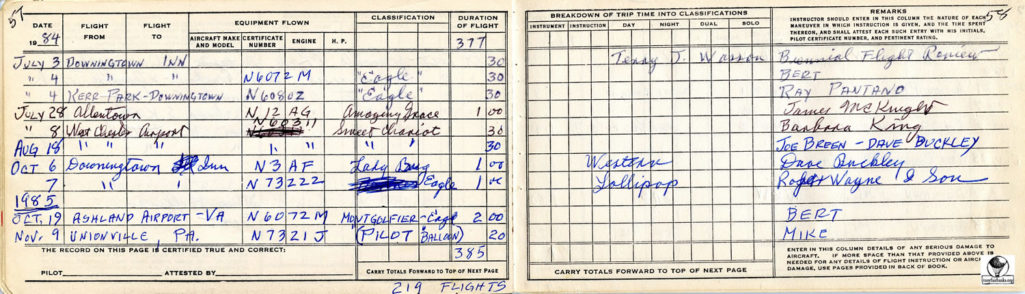 57
DATE FLIGHT FROM FLIGHT TO EQUIPMENT FLOWN CLASSIFICATION DURATION OF FLIGHT
1984 AIRCRAFT MAKE AND MODEL CERTIFICATE NUMBER ENGINE H. P. 377
JULY 3 DOWNINGTOWN INN 30
" 4 " " N6072M "Eagle" 30
" 4 KERR PARK-DOWNINGTOWN N6080Z "Eagle" 30
JULY 28 Allentown N 12 AG Amazing Grace 1 00
" 8 West Chester Airport N60311 Sweet Chariot 30
AUG 18 " " " " " 30
OCT 6 Downingtown Inn N 3 AF Lady Bug 1 00
7 " " N 73222 Eagle 1 00
1985
OCT. 19 ASHLAND AIRPORT - VA N6072M MONTGOLFIER - Eagle 2 00
NOV. 9 UNIONVILLE, PA. N7321J (PILOT BALLOON) 20
THE RECORD ON THIS PAGE IS CERTIFIED TRUE AND CORRECT: 385
PILOT ATTESTED BY CARRY TOTALS FORWARD TO TOP OF NEXT PAGE
219 FLIGHTS
58
BREAKDOWN OF TRIP TIME INTO CLASSIFICATIONS REMARKS
INSTRUMENT INSTRUCTION DAY NIGHT DUAL SOLO
INSTRUCTOR SHOULD ENTER IN THIS COLUMN THE NATURE OF EACH
MANEUVER IN WHICH INSTRUCTION IS GIVEN, AND THE TIME SPENT
THEREON, AND SHALL ATTEST EACH SUCH ENTRY WITH HIS INITIALS,
PILOT CERTIFICATE NUMBER, AND PERTINENT RATING.
Terry J. Wasson Biennial Flight Review
BERT
RAY PANTANO
James McKnight
Barbara King
JOE BREEN - DAVE BUCKLEY
Western Dave Buckley
Lollipop Wayne & Son
BERT
MIKE
ENTER IN THIS COLUMN DETAILS OF ANY SERIOUS DAMAGE TO
AIRCRAFT. IF MORE SPACE THAN THAT PROVIDED ABOVE IS
NEEDED FOR ANY DETAILS OF FLIGHT INSTRUCTION OR
DAMAGE, USE PAGES PROVIDED IN BACK OF BOOK.
CARRY TOTALS FORWARD TO TOP OF NEXT PAGE